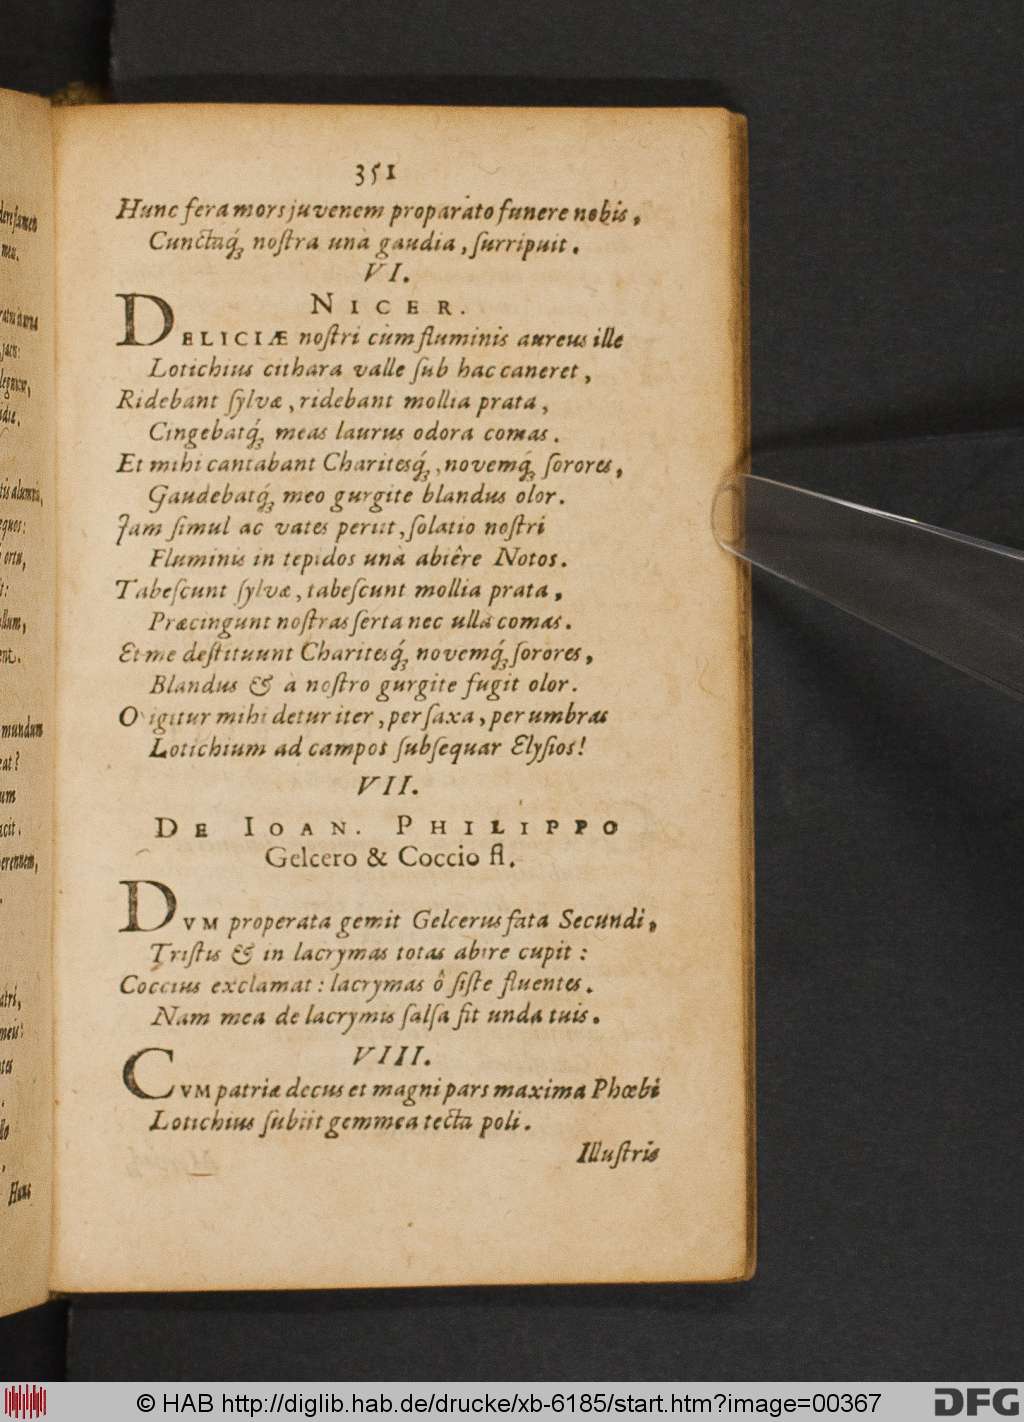 351
Hunc fera mors juvenem proparato funere nobis,
Cunctaq́ꝫ nostra unà gaudia, surripuit.
VI.
NICER.
DELICIÆ nostri cùm fluminis aureus ille
Lotichius cithara valle sub hac caneret,
Ridebant sylvæ, ridebant mollia prata,
Cingebatq́ꝫ meas laurus odora comas.
Et mihi cantabant Charitesq́ꝫ, novemq́ꝫ sorores,
Gaudebatq́ꝫ meo gurgite blandus olor.
Jam simul ac vates periit, solatio nostri
Fluminis in tepidos unà abiêre Notos.
Tabescunt sylvæ, tabescunt mollia prata,
Præcingunt nostras serta nec ulla comas.
Et me destituunt Charitesq́ꝫ novemq́ꝫ sorores,
Blandus & à nostro gurgite fugit olor.
O igitur mihi detur iter, per saxa, per umbras
Lotichium ad campos subsequar Elysios!
VII.
DE IOAN. PHILIPPO
Gelcero & Coccio fl.
DVM properata gemit Gelcerus fata Secundi,
Tristis & in lacrymas totas abire cupit:
Coccius exclamat: lacrymas ô siste fluentes.
Nam mea de lacrymis salsa fit unda tuis.
VIII.
CVM patriæ decus et magni pars maxima Phœbi
Lotichius subiit gemmea tecta poli.
Illustris
mea.
mundum
eat?
um
Hunc
© HAB http://diglib.hab.de/drucke/xb-6185/start.htm?image=00367
DFG